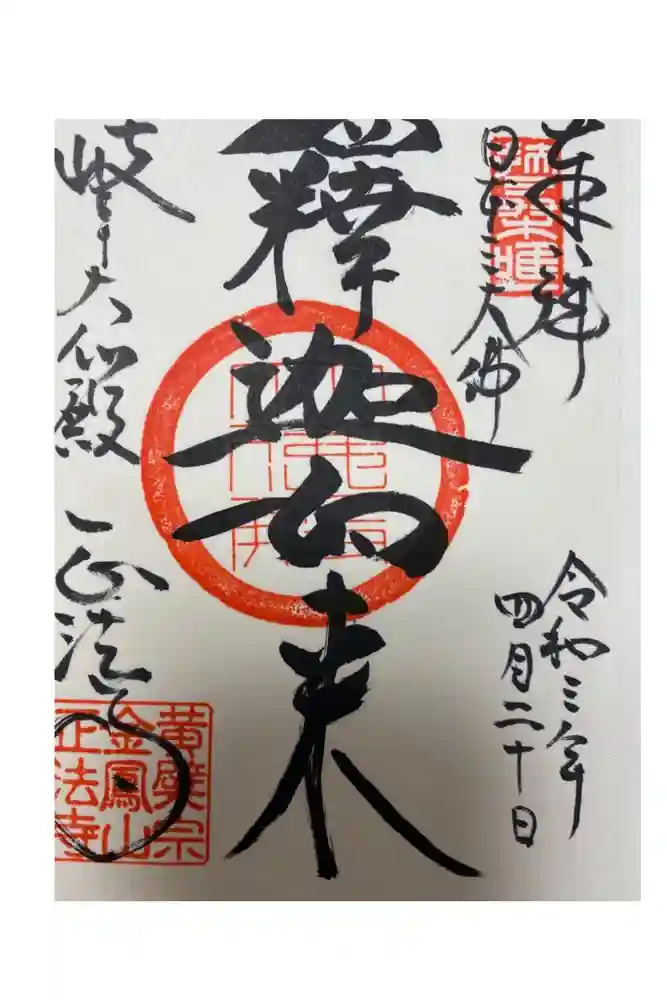 奉拝
日本三大佛
令和三年
四月二十日
釋迦如来
岐阜大仏殿
正法寺
黄檗宗
金鳳山
正法寺